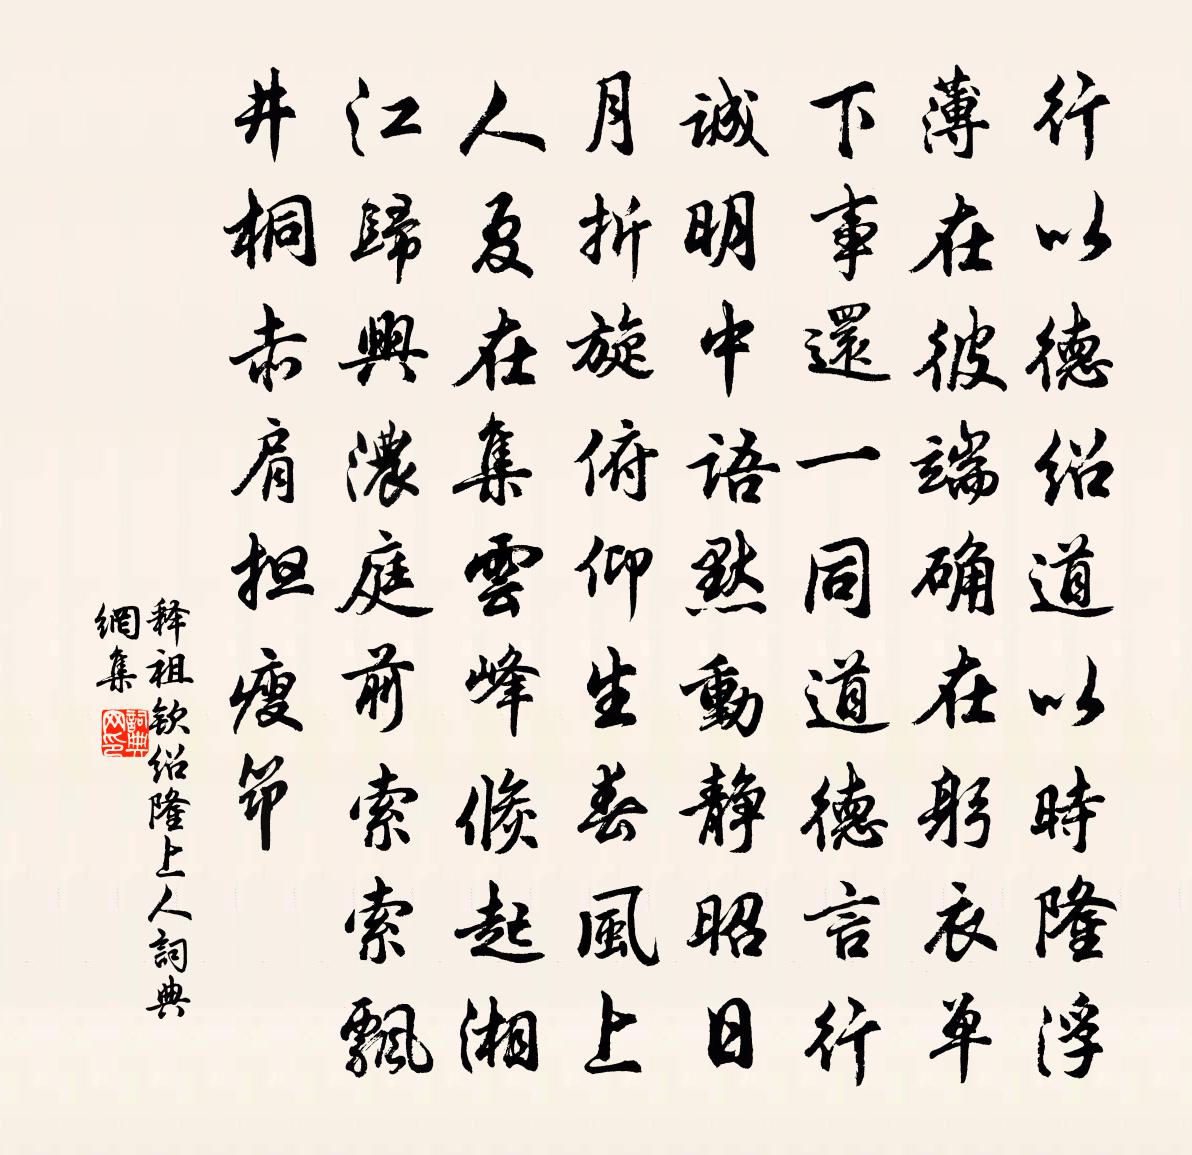 行以德绍道以時隆浮
薄在彼端确在躬衣单
下事還一同道德言行
誠明中語默動静昭日
月折旋俯仰生春風上
人夏在集雲峰倏起湘
江歸興濃庭前索索飄
井桐赤肩担瘦筇
释祖钦绍隆上人詞典
網集
詞典網印